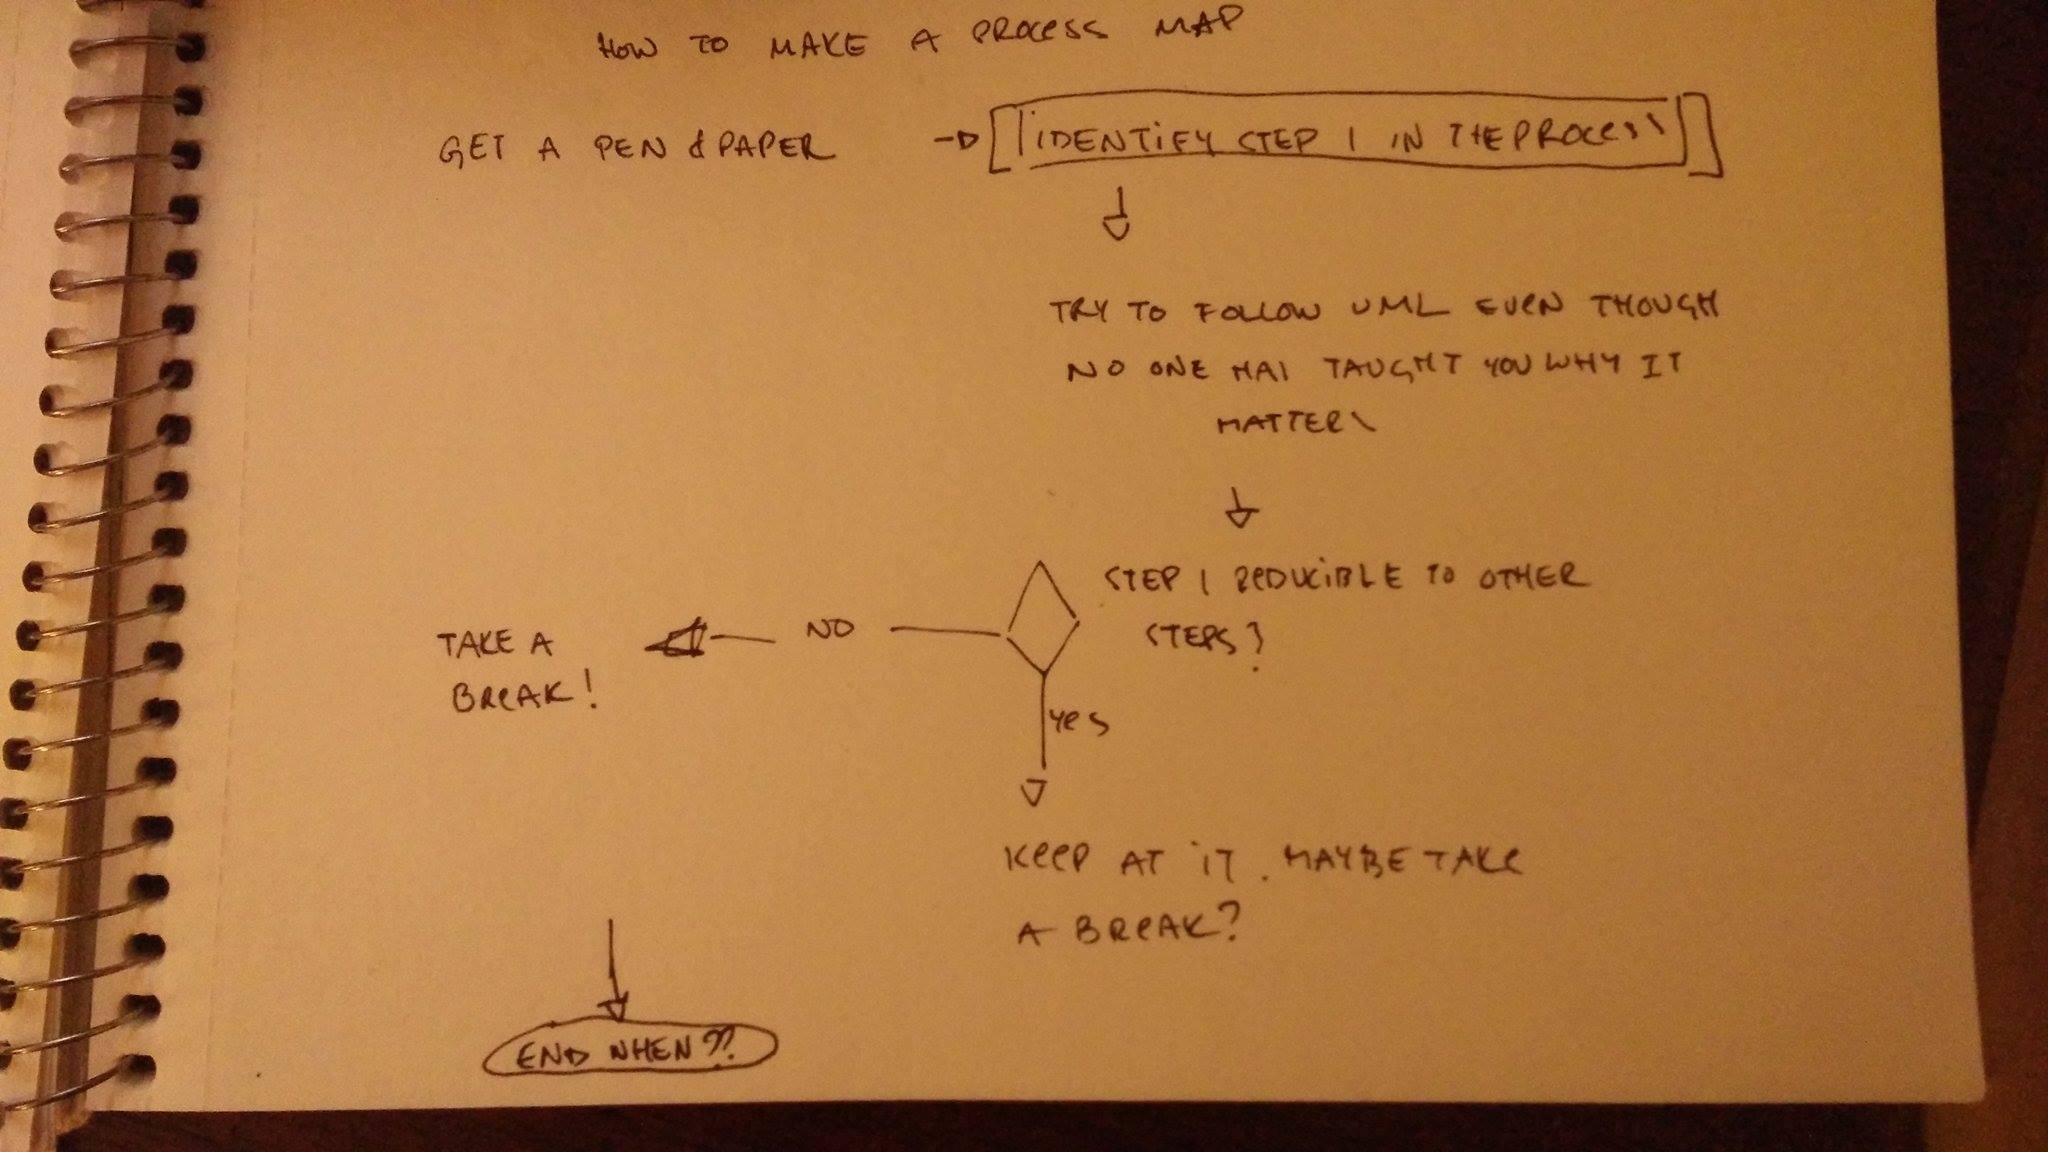 HOW TO MAKE A PROCESS MAP
GET A PEN & PAPER
IDENTIFY STEP 1 IN THE PROCESS
TRY TO FOLLOW UML EVEN THOUGH
NO ONE HAS TAUGHT YOU WHY IT
MATTERS
STEP 1 REDUCIBLE TO OTHER
STEPS?
NO
TAKE A
BREAK!
YES
KEEP AT IT. MAYBE TAKE
A BREAK?
END WHEN??